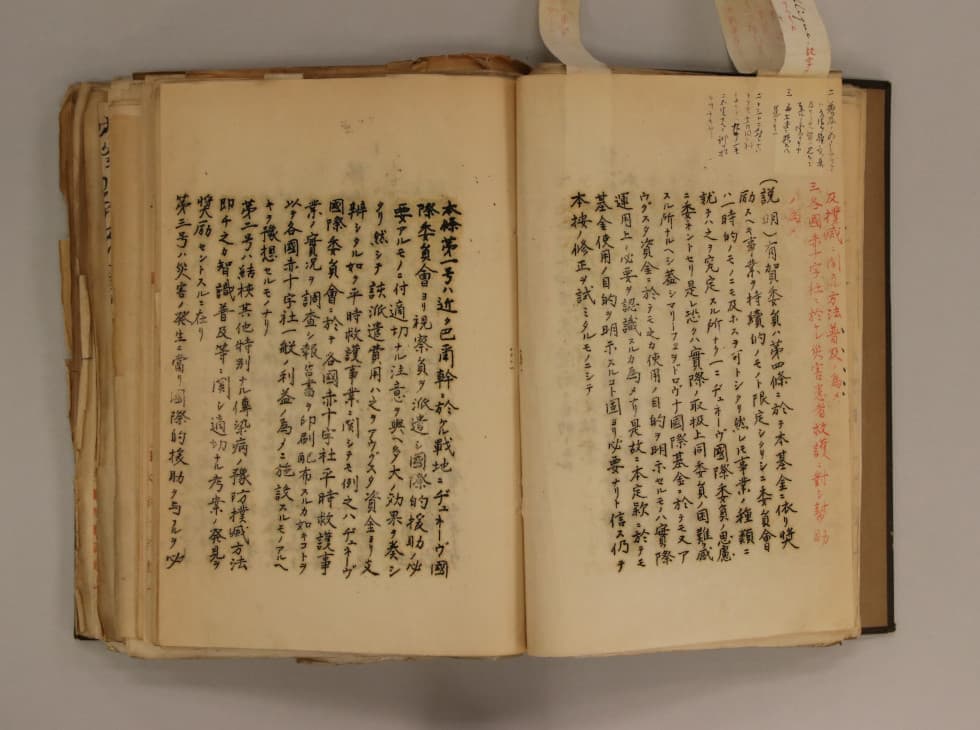 及撲滅ニ関スル方法普及ノ為メ
三、各國赤十字社ニ於テ災害患者救護ニ對シ幇助
ノ為メ
(説明)有賀委員ハ第四條ニ於テ本基金ニ依リ奬
励スヘキ事業ヲ持續的ノモノト限定シタリシニ委員會ハ
一時的ノモノニモ及ホスヲ可トシタリ然レトモ事業ノ種類ニ
就テハ之ヲ定スル所ナク一ニヂュネーヴ國際委員ノ思慮
ニ委ネントセリ是レ恐クハ實際ノ取扱上同委員ノ困難感
スル所ナルヘシ蓋シマリーフェヲドロヴナ國際基金ニ於テモ又ア
ウグスタ資金ニ於テモ之カ使用ノ目的ヲ明示セルモノハ實際
運用上ノ必要ヲ認識スルカ為メナリ是故ニ本定款ニ於テモ
基金使用ノ目的ヲ明示スルコト固ヨリ必要ナリト信ス仍テ
本按ノ修正ヲ試ミタルモノニシテ
本條第一号ハ近ク巴爾幹ニ於ケル戰地ニヂュネーヴ國
際委員會ヨリ視察員ヲ派遣シ國際的援助ノ必
要アルモノニ付適切ナル注意ヲ與ヘタ大ノ効果ヲ奏シ
タリ然シテ該派遣費用ハ之ヲアウグスタ資金ヨリ支
辨シタル如ク平時救護事業ニ関シテモ例之ハヂュネーヴ
國際委員會ニ於テ各國赤十字社平時救護事
業ノ實況ヲ調査シ報告書ヲ印刷配布スルカ如キコトヲ
以テ各國赤十字社一般ノ利益ノ為メニ施設スルモノアルヘ
キヲ豫想セルモノナリ
第二号ハ結核其他特別ナル傳染病ノ豫防撲滅方法
即チ之カ智識普及等ニ関シ適切ナル考案ノ発見ヲ
奬励セントスルニ在リ
第三号ハ災害ノ発生ニ當リ國際的援助ヲ与フルヲ必